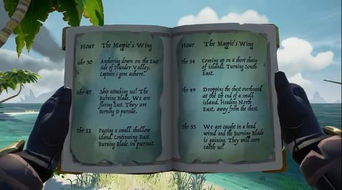 Hour The Magpie's Wing
Anchoring down on the East
side of Plunder Valley.
Captain's gone ashore.
Ship attacking us! The
Burning Blade. We are
fleeing East. They are
turning to pursue.
Passing a small shallow
island. Continuing East.
Burning Blade in pursuit.
Hour The Magpie's Wing
Coming up on a short chain
of islands. Turning South
East.
Dropping the chest overboard
at the
end of a small
island. Heading North
East, away from the chest.
We are caught in a head
wind and the Burning Blade
is gaining. They will soon
catch us!